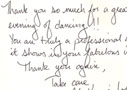 Thank you so much for a great
evening of dancing!!
You are truly a professional &
it shows in your fabulous
Thank you again,
Take care